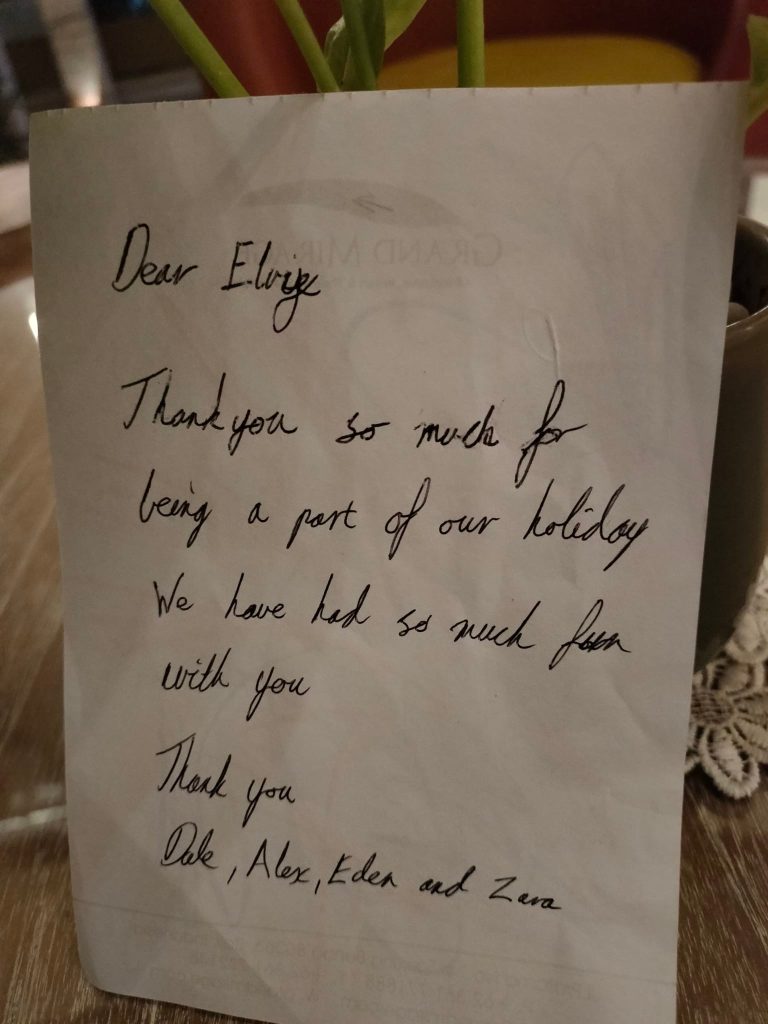 Dear
Thank you so much for
being a part of our holiday
We have had so much fun
with you
Thank you
Dale, Alex, Eden and Zara